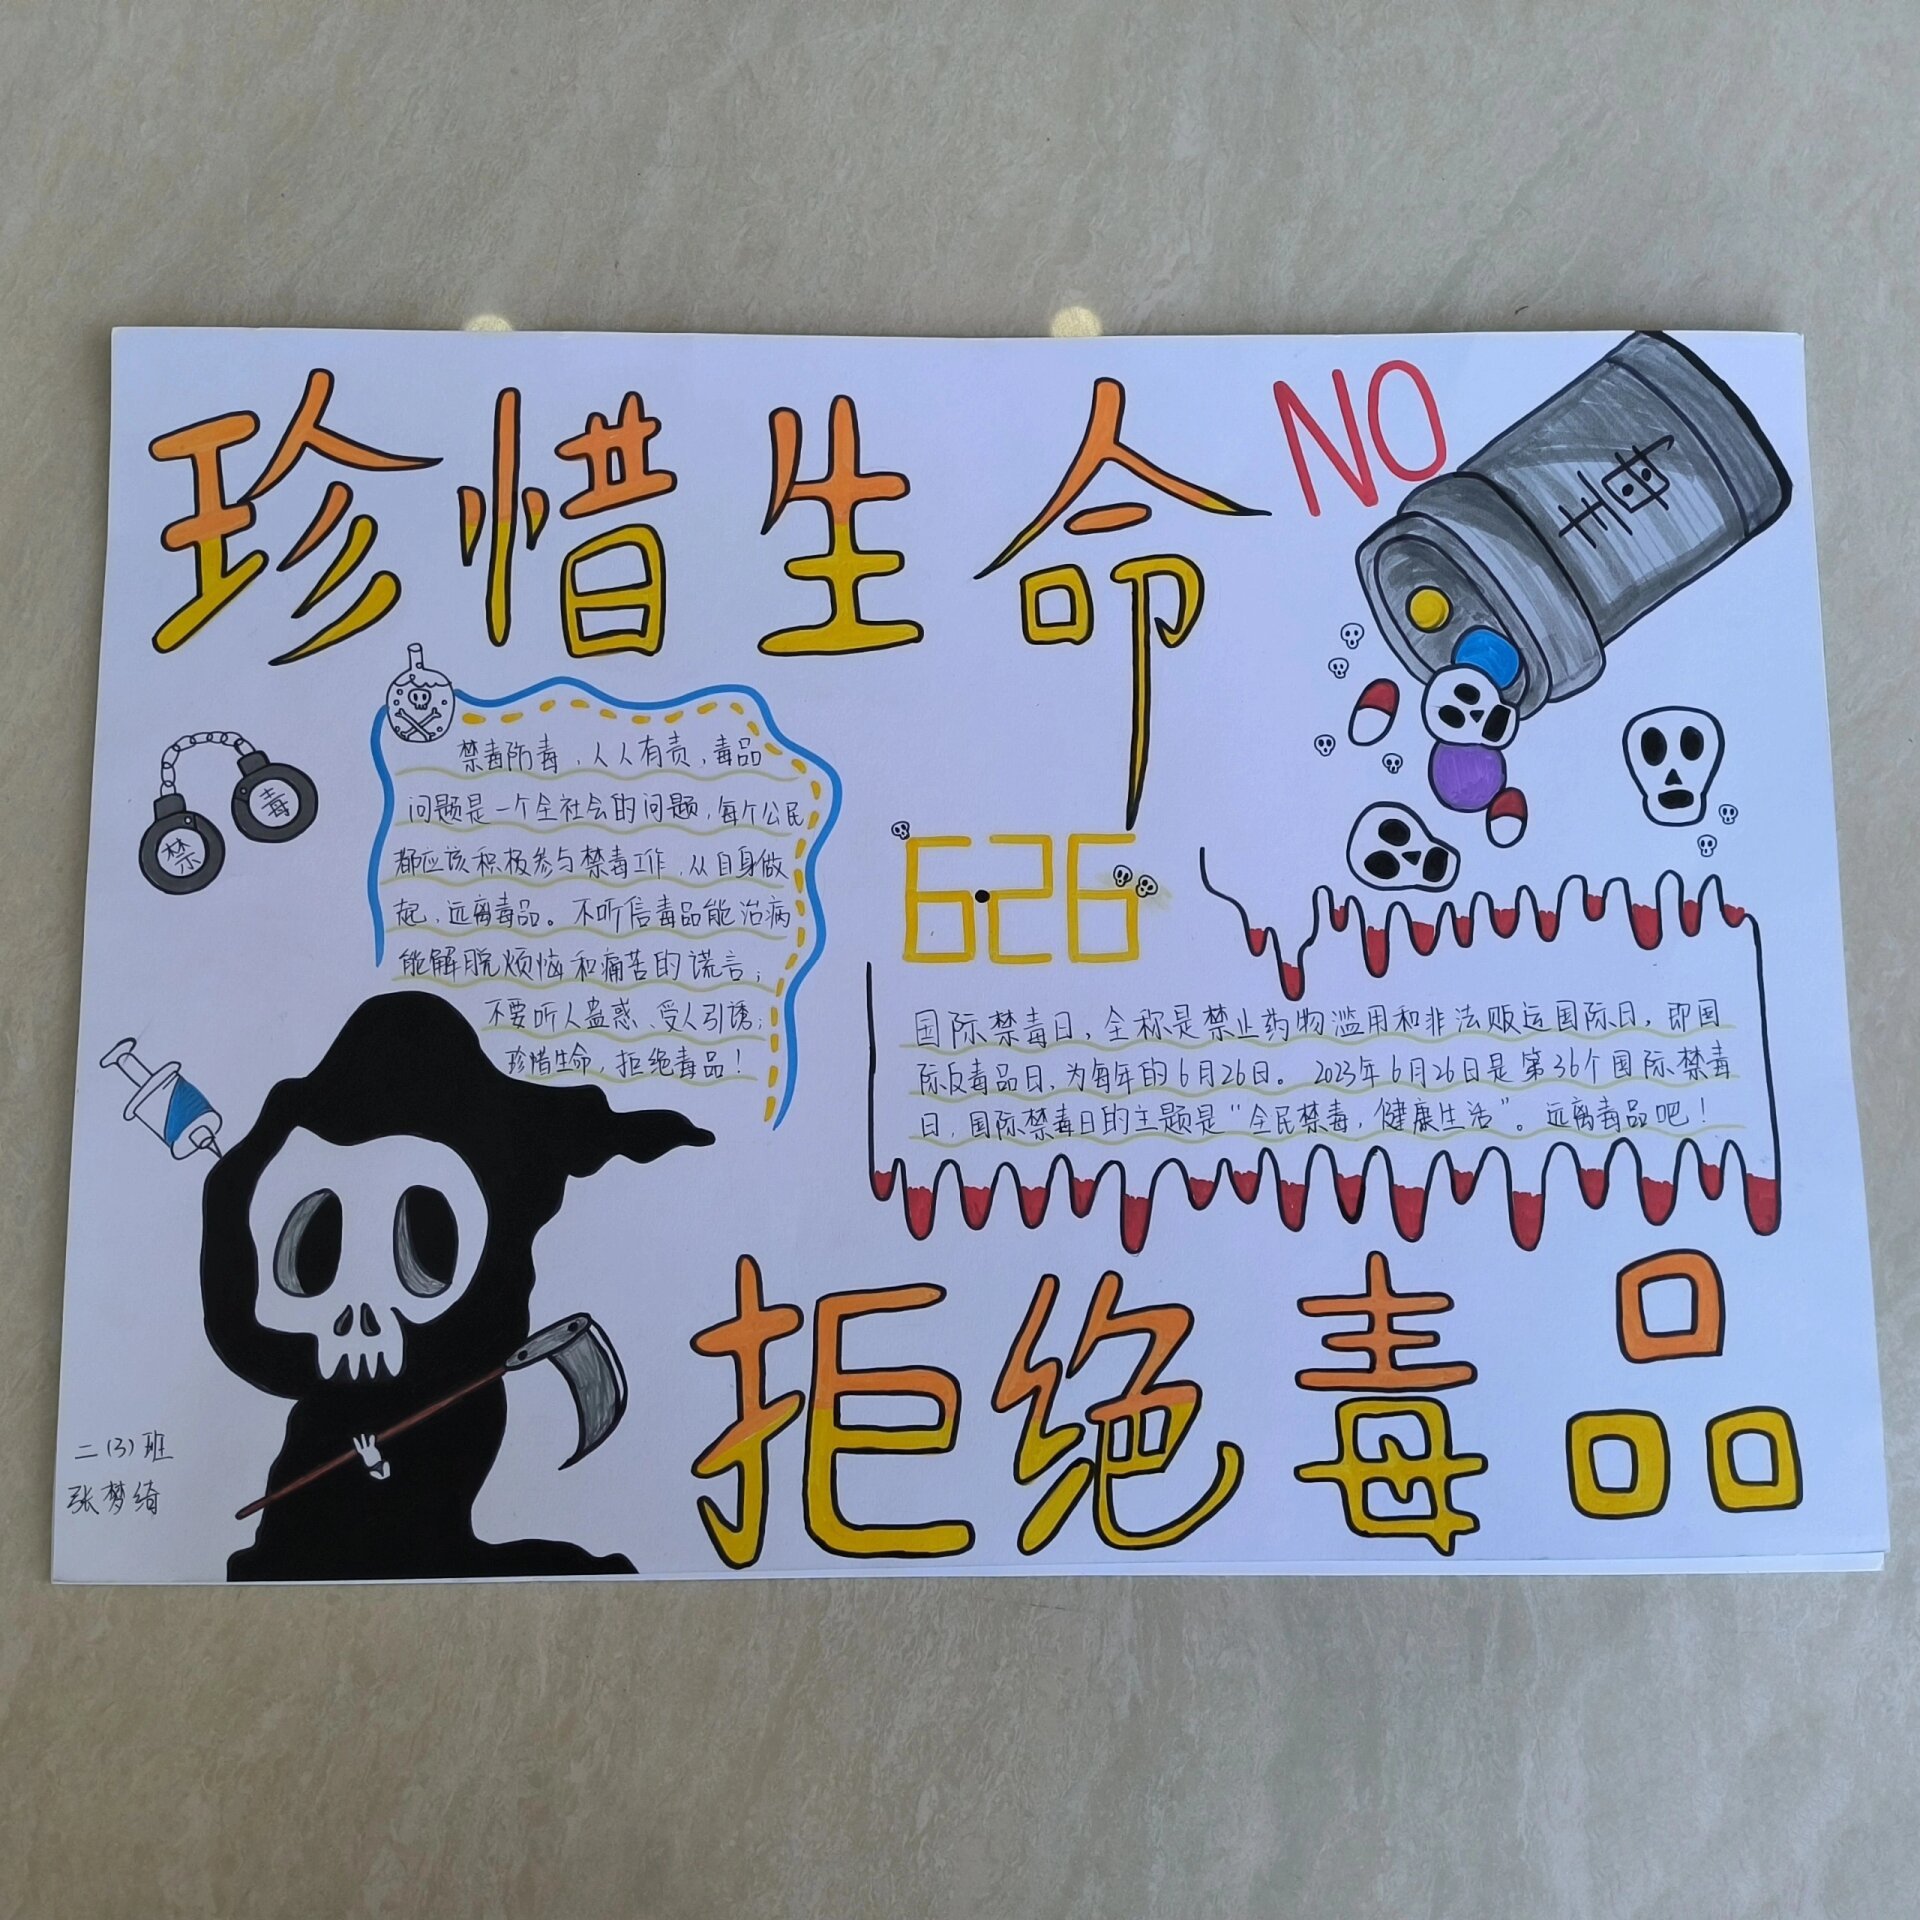 珍惜生命
NO
毒
禁
毒
禁毒防毒，人人有责，毒品
问题是一个全社会的问题，每个公民
都应该积极参与禁毒工作，从自身做
起，远离毒品。不听信毒品能治病
能解脱烦恼和痛苦的谎言；
不要听人蛊惑、受人引诱；
珍惜生命，拒绝毒品！
6·26
国际禁毒日，全称是禁止药物滥用和非法贩运国际日，即国
际反毒品日，为每年的6月26日。2023年6月26日是第36个国际禁毒
日，国际禁毒日的主题是“全民禁毒，健康生活”。远离毒品吧！
拒绝毒品
二（3）班
张梦绮